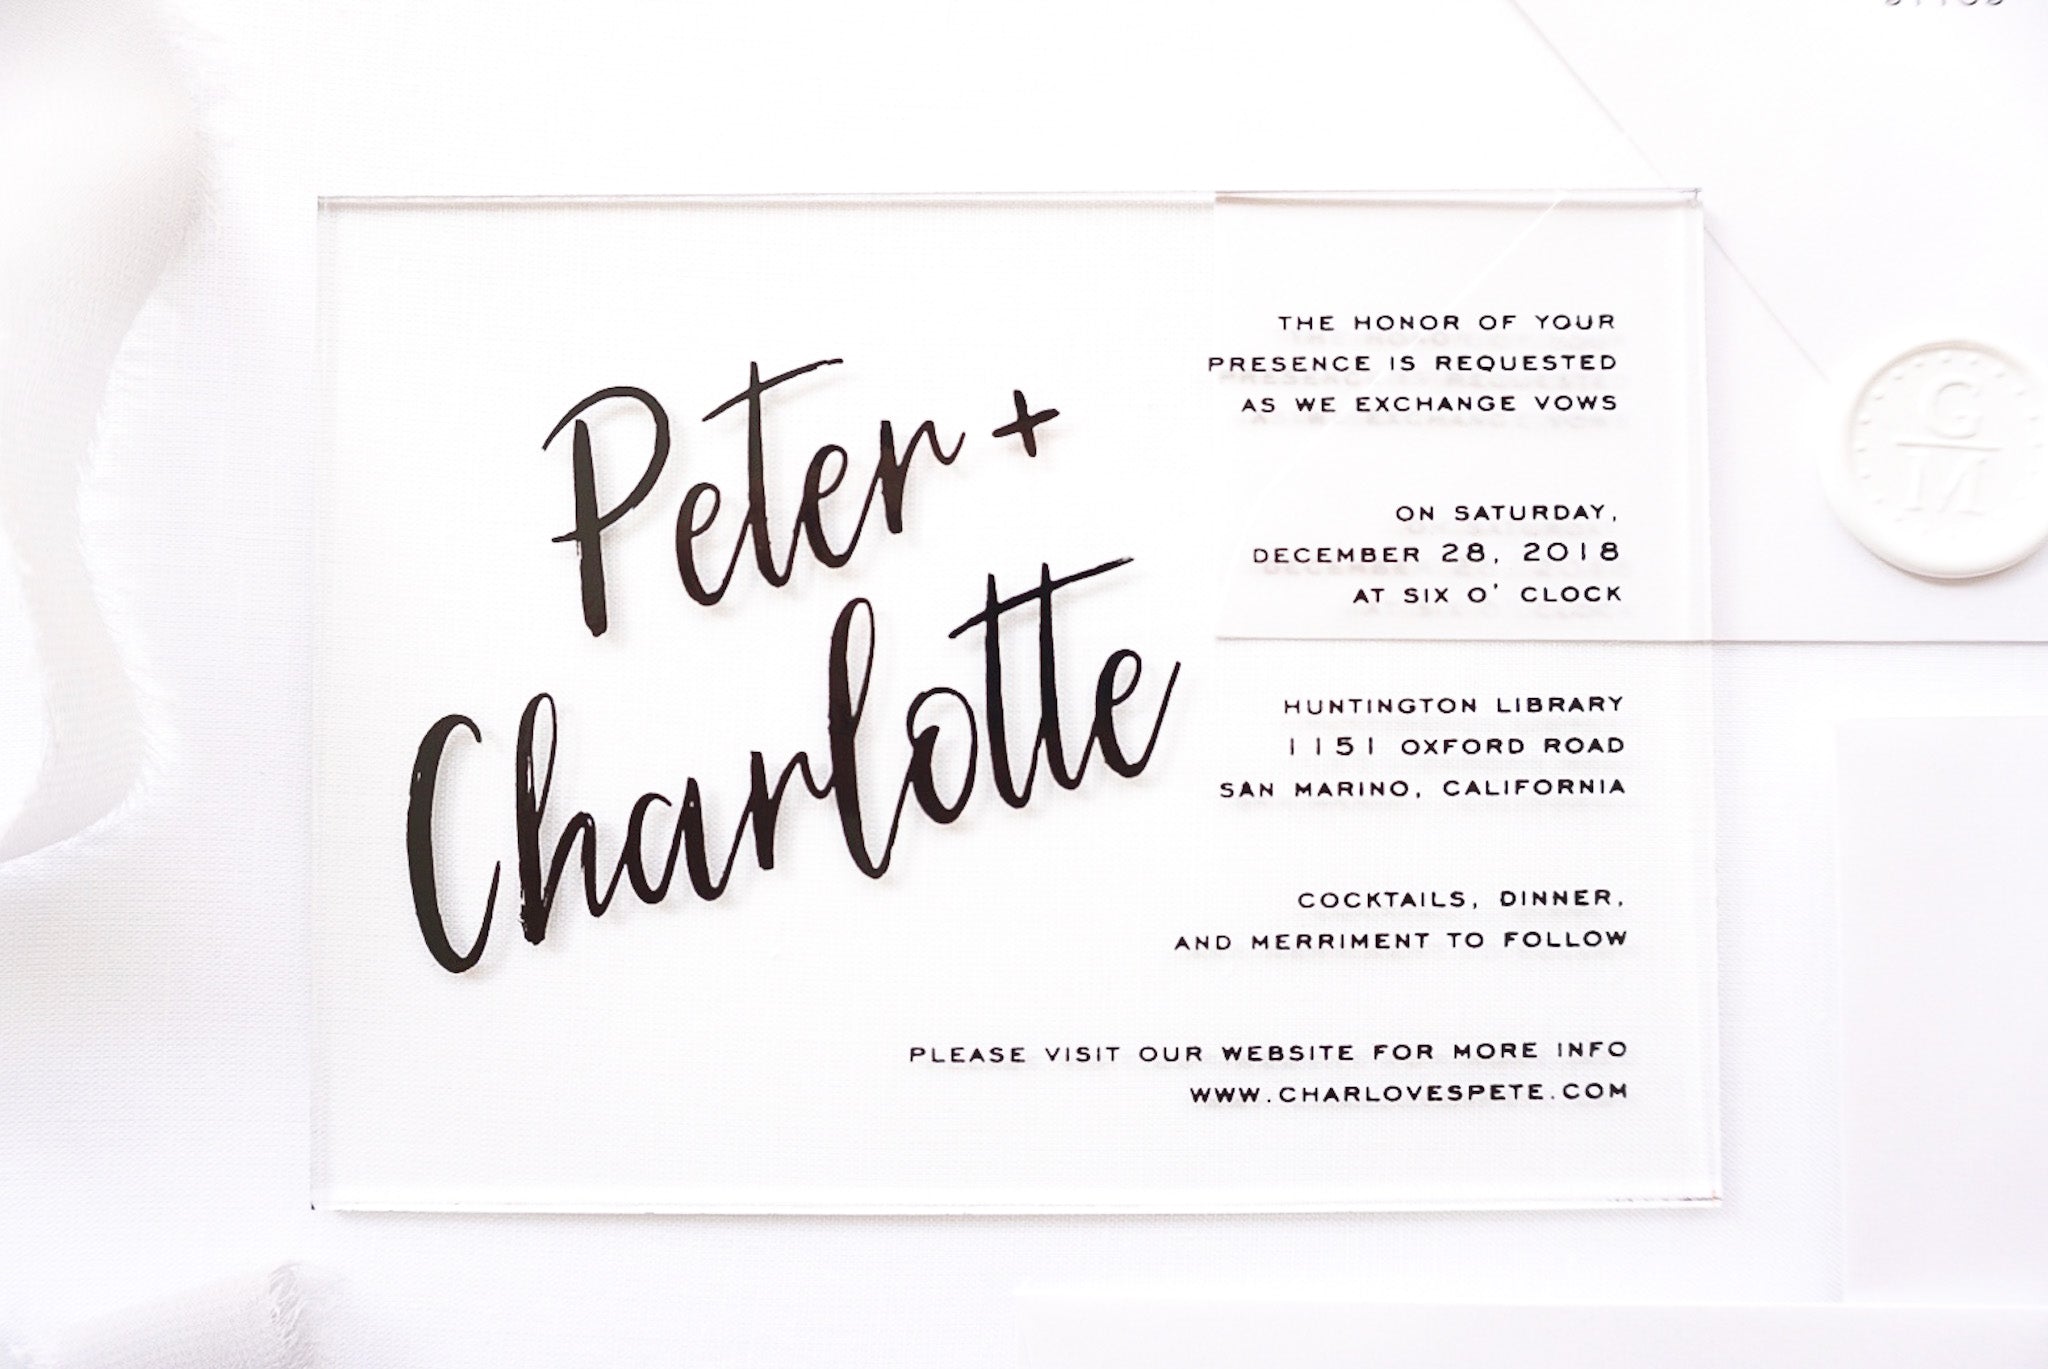 Peter +
Charlotte
THE HONOR OF YOUR
PRESENCE IS REQUESTED
AS WE EXCHANGE VOWS
ON SATURDAY,
DECEMBER 28, 2018
AT SIX O' CLOCK
HUNTINGTON LIBRARY
1151 OXFORD ROAD
SAN MARINO, CALIFORNIA
COCKTAILS, DINNER,
AND MERRIMENT TO FOLLOW
PLEASE VISIT OUR WEBSITE FOR MORE INFO
WWW.CHARLOVESPETE.COM
G
M